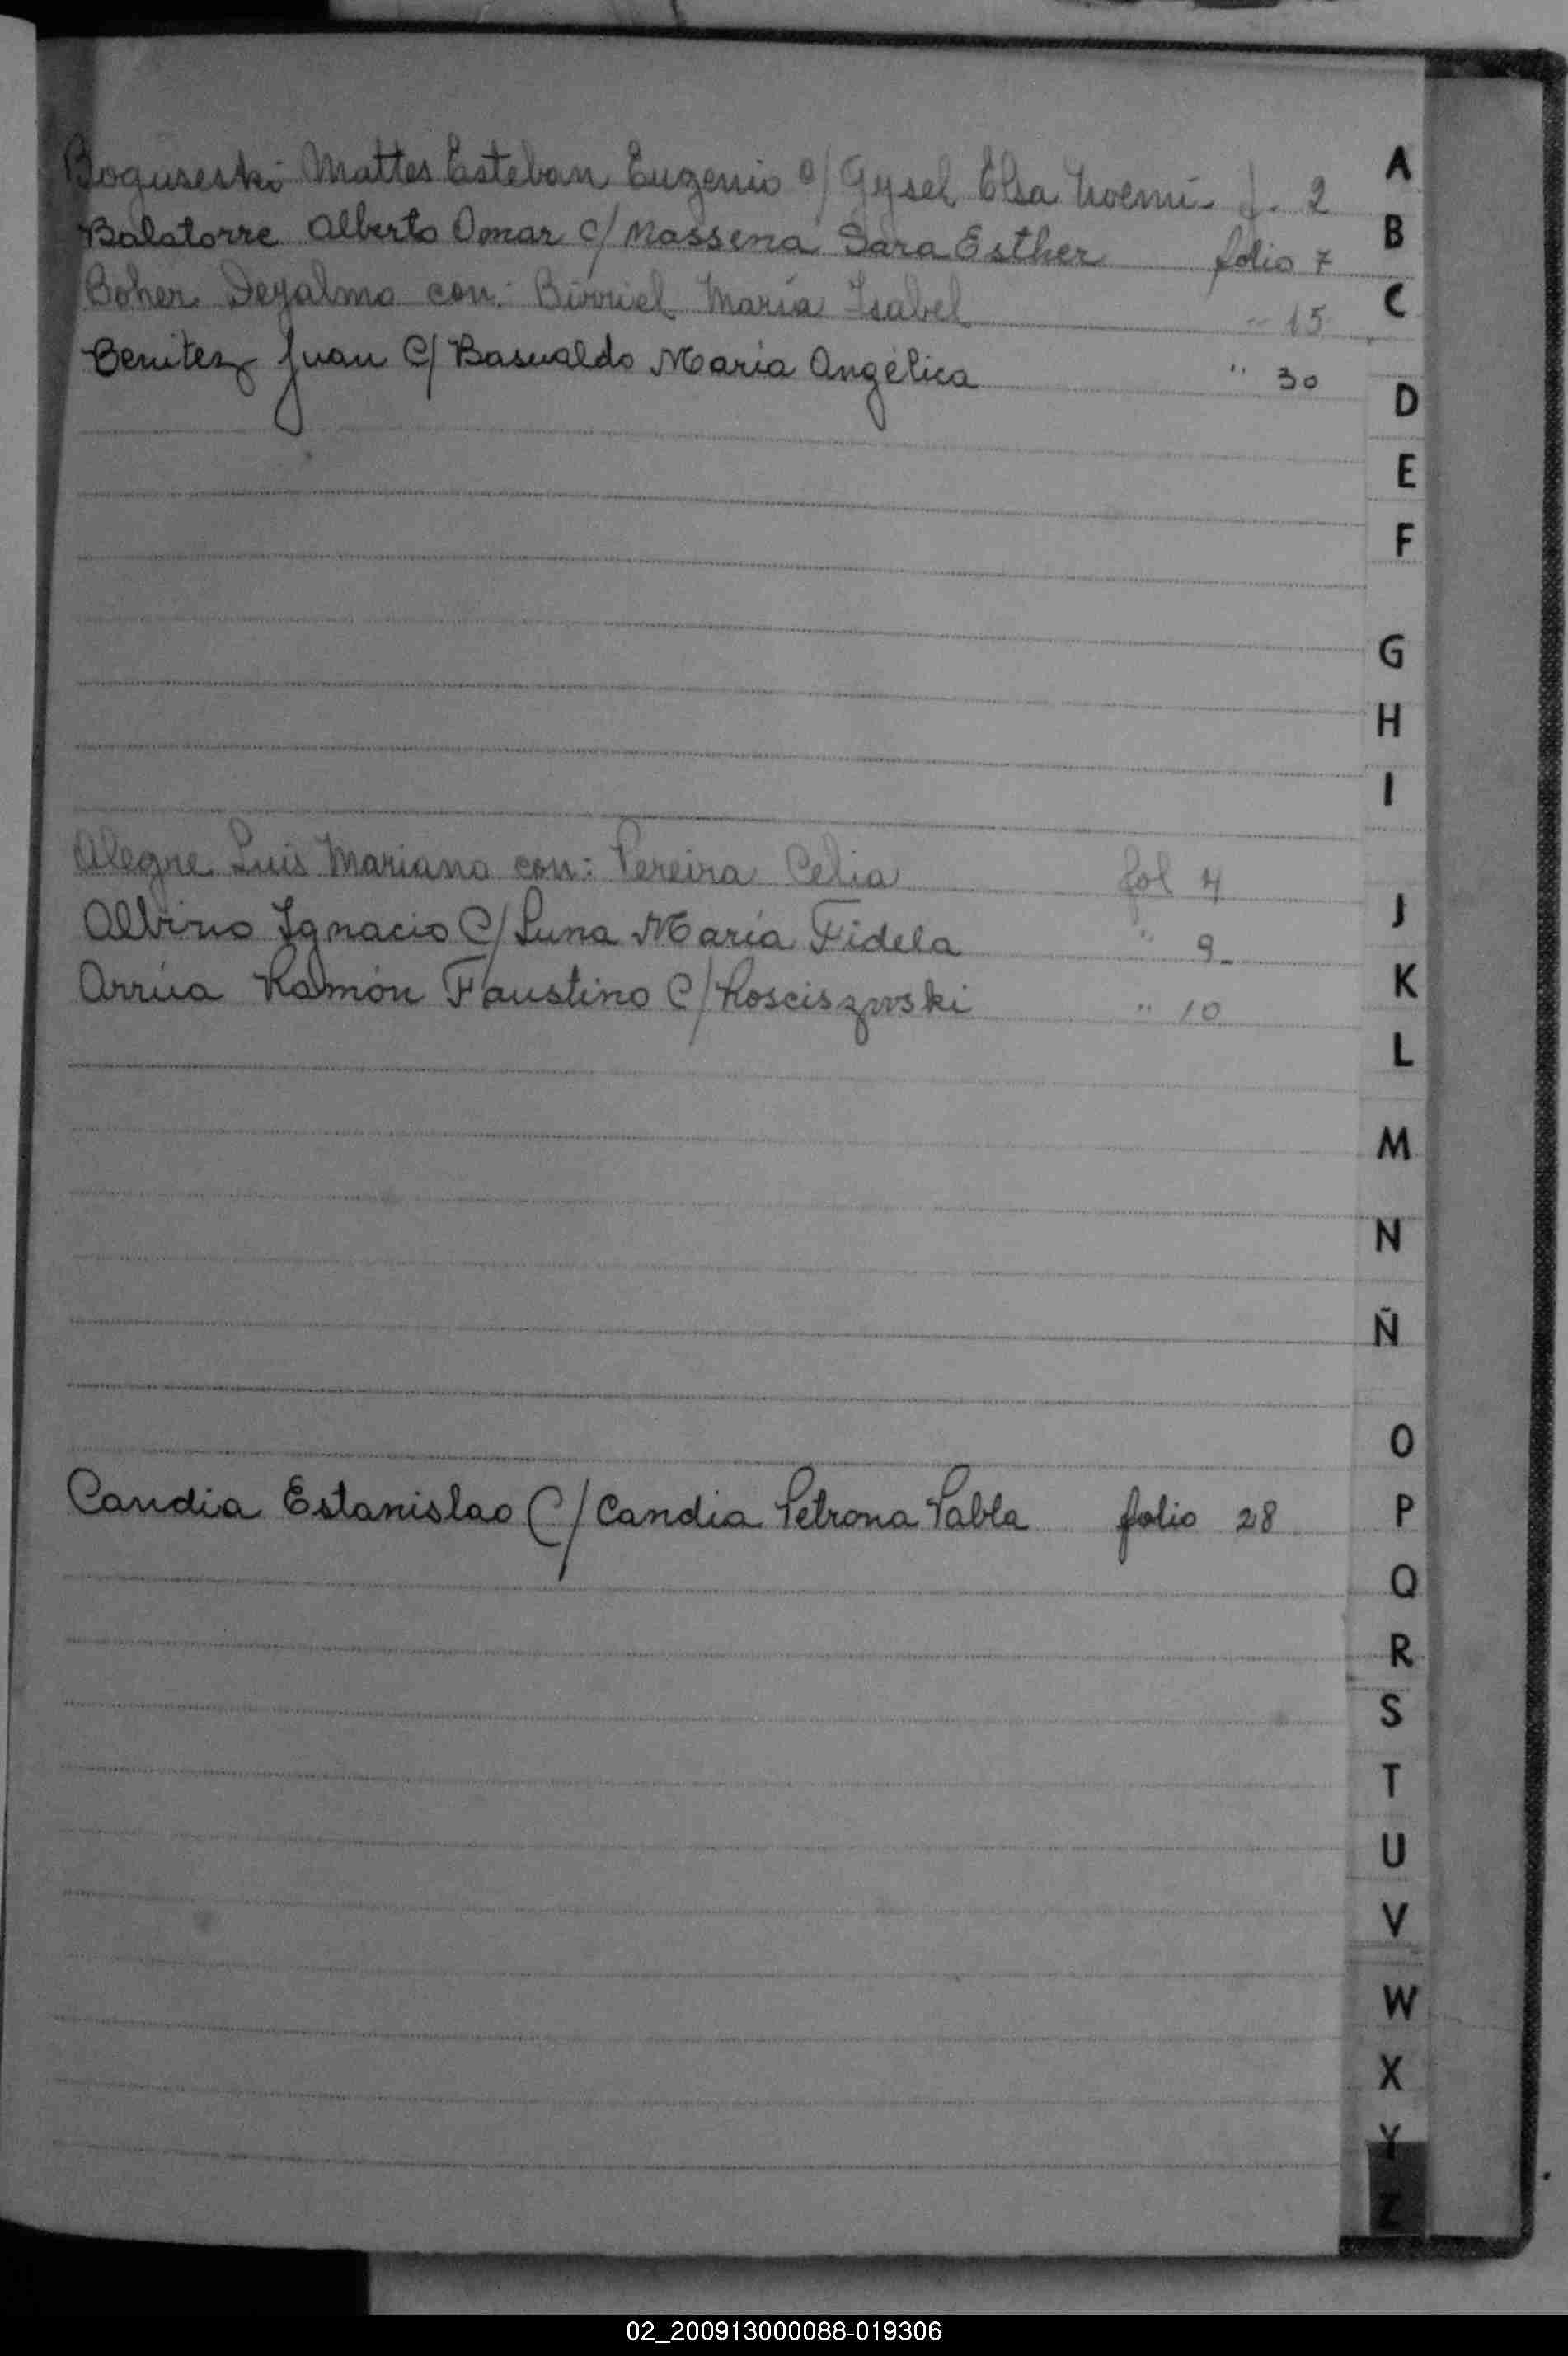 Boguseski Mattes Esteban Eugenio c/ Gysel Elsa Noemi - f. 2
Balatorre Alberto Omar c/ Massena Sara Esther folio 7
Boher Deyalmo con: Birriel María Isabel " 15
Benitez Juan C/ Basualdo María Angélica " 30
Alegre Luis Mariano con: Pereira Celia fol 4
Albino Ignacio C/ Luna María Fidela " 9-
Arrúa Ramón Faustino C/ Kosciszwski " 10
Candia Estanislao C/ Candia Petrona Pabla folio 28
A
B
C
D
E
F
G
H
I
J
K
L
M
N
Ñ
O
P
Q
R
S
T
U
V
W
X
Y
Z
02_200913000088-019306